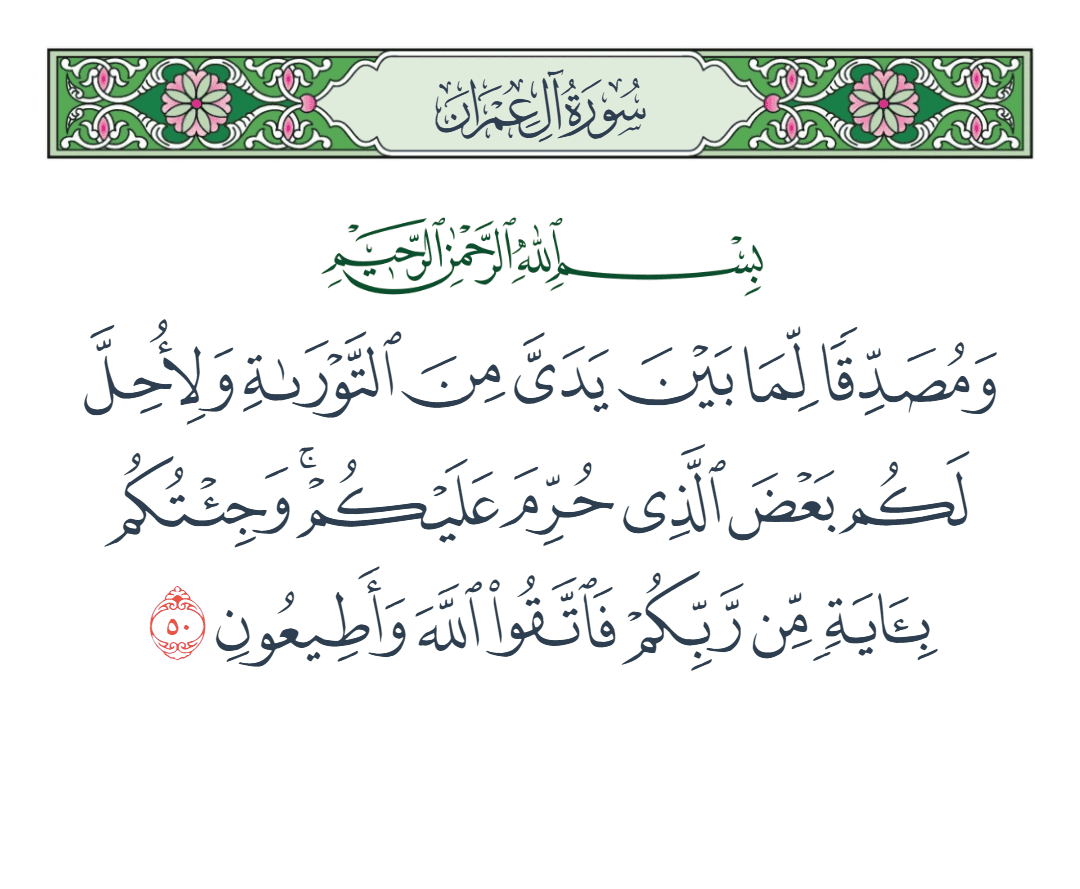 سُورَةُ آلِ عِمْرَانَ
بِسْمِ ٱللَّهِ ٱلرَّحْمَٰنِ ٱلرَّحِيمِ
وَمُصَدِّقًا لِّمَا بَيْنَ يَدَىَّ مِنَ ٱلتَّوْرَىٰةِ وَلِأُحِلَّ
لَكُم بَعْضَ ٱلَّذِى حُرِّمَ عَلَيْكُمْ ۚ وَجِئْتُكُم
بِـَٔايَةٍ مِّن رَّبِّكُمْ فَٱتَّقُوا۟ ٱللَّهَ وَأَطِيعُونِ ٥٠